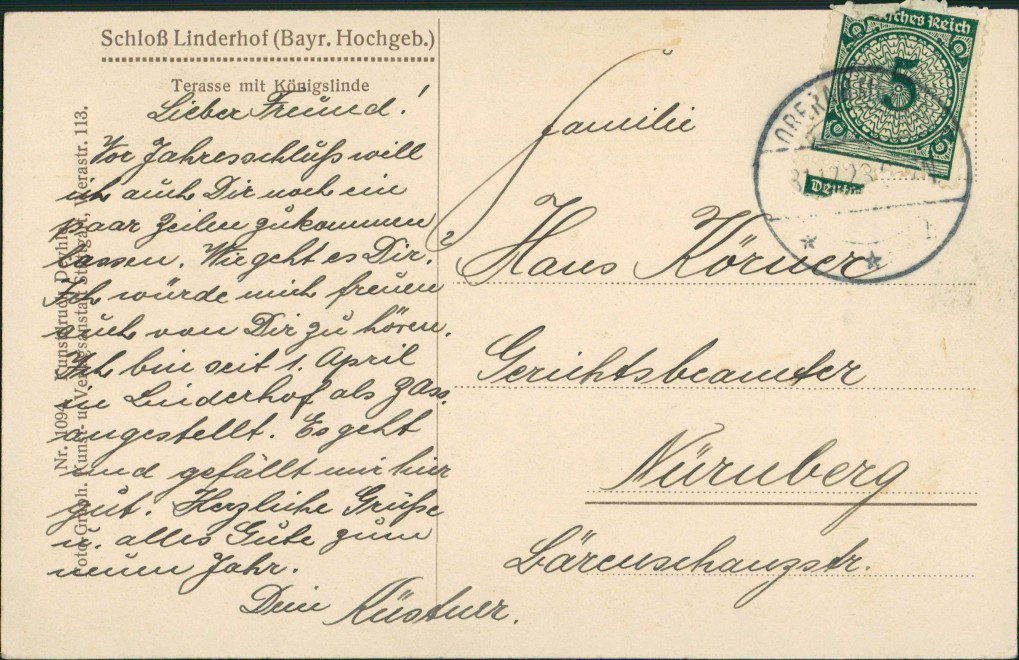 Schloß Linderhof (Bayr. Hochgeb.)
Terasse mit Königslinde
Lieber Freund!
Vor Jahresschluß will
ich auch Dir noch ein
paar Zeilen zukommen
lassen. Wie geht es Dir?
Ich würde mich freuen
auch von Dir zu hören.
Ich bin seit 1. April
in Linderhof als
angestellt. Es geht
und gefällt mir hier
gut. Herzliche Grüße
u. alles Gute zum
neuen Jahr.
Dein Küstner.
Nr. 1094 Kunstdruck
Foto Graph. Kunst- u. Verlagsanstalt Stuttgart, Werastr. 113.
Deutsches Reich
5
OBERAM
31.12.23
Deutsc
Familie
Hans Körner
Gerichtsbeamter
Nürnberg
Bärenschanzstr.